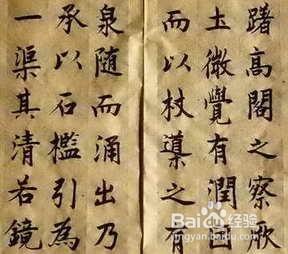 躇高閣之察厥
土微覺有潤因
而以杖導之有
泉隨而涌出乃
承以石檻引為
一渠其清若鏡
Baidu 经验
jingyan.baidu.com